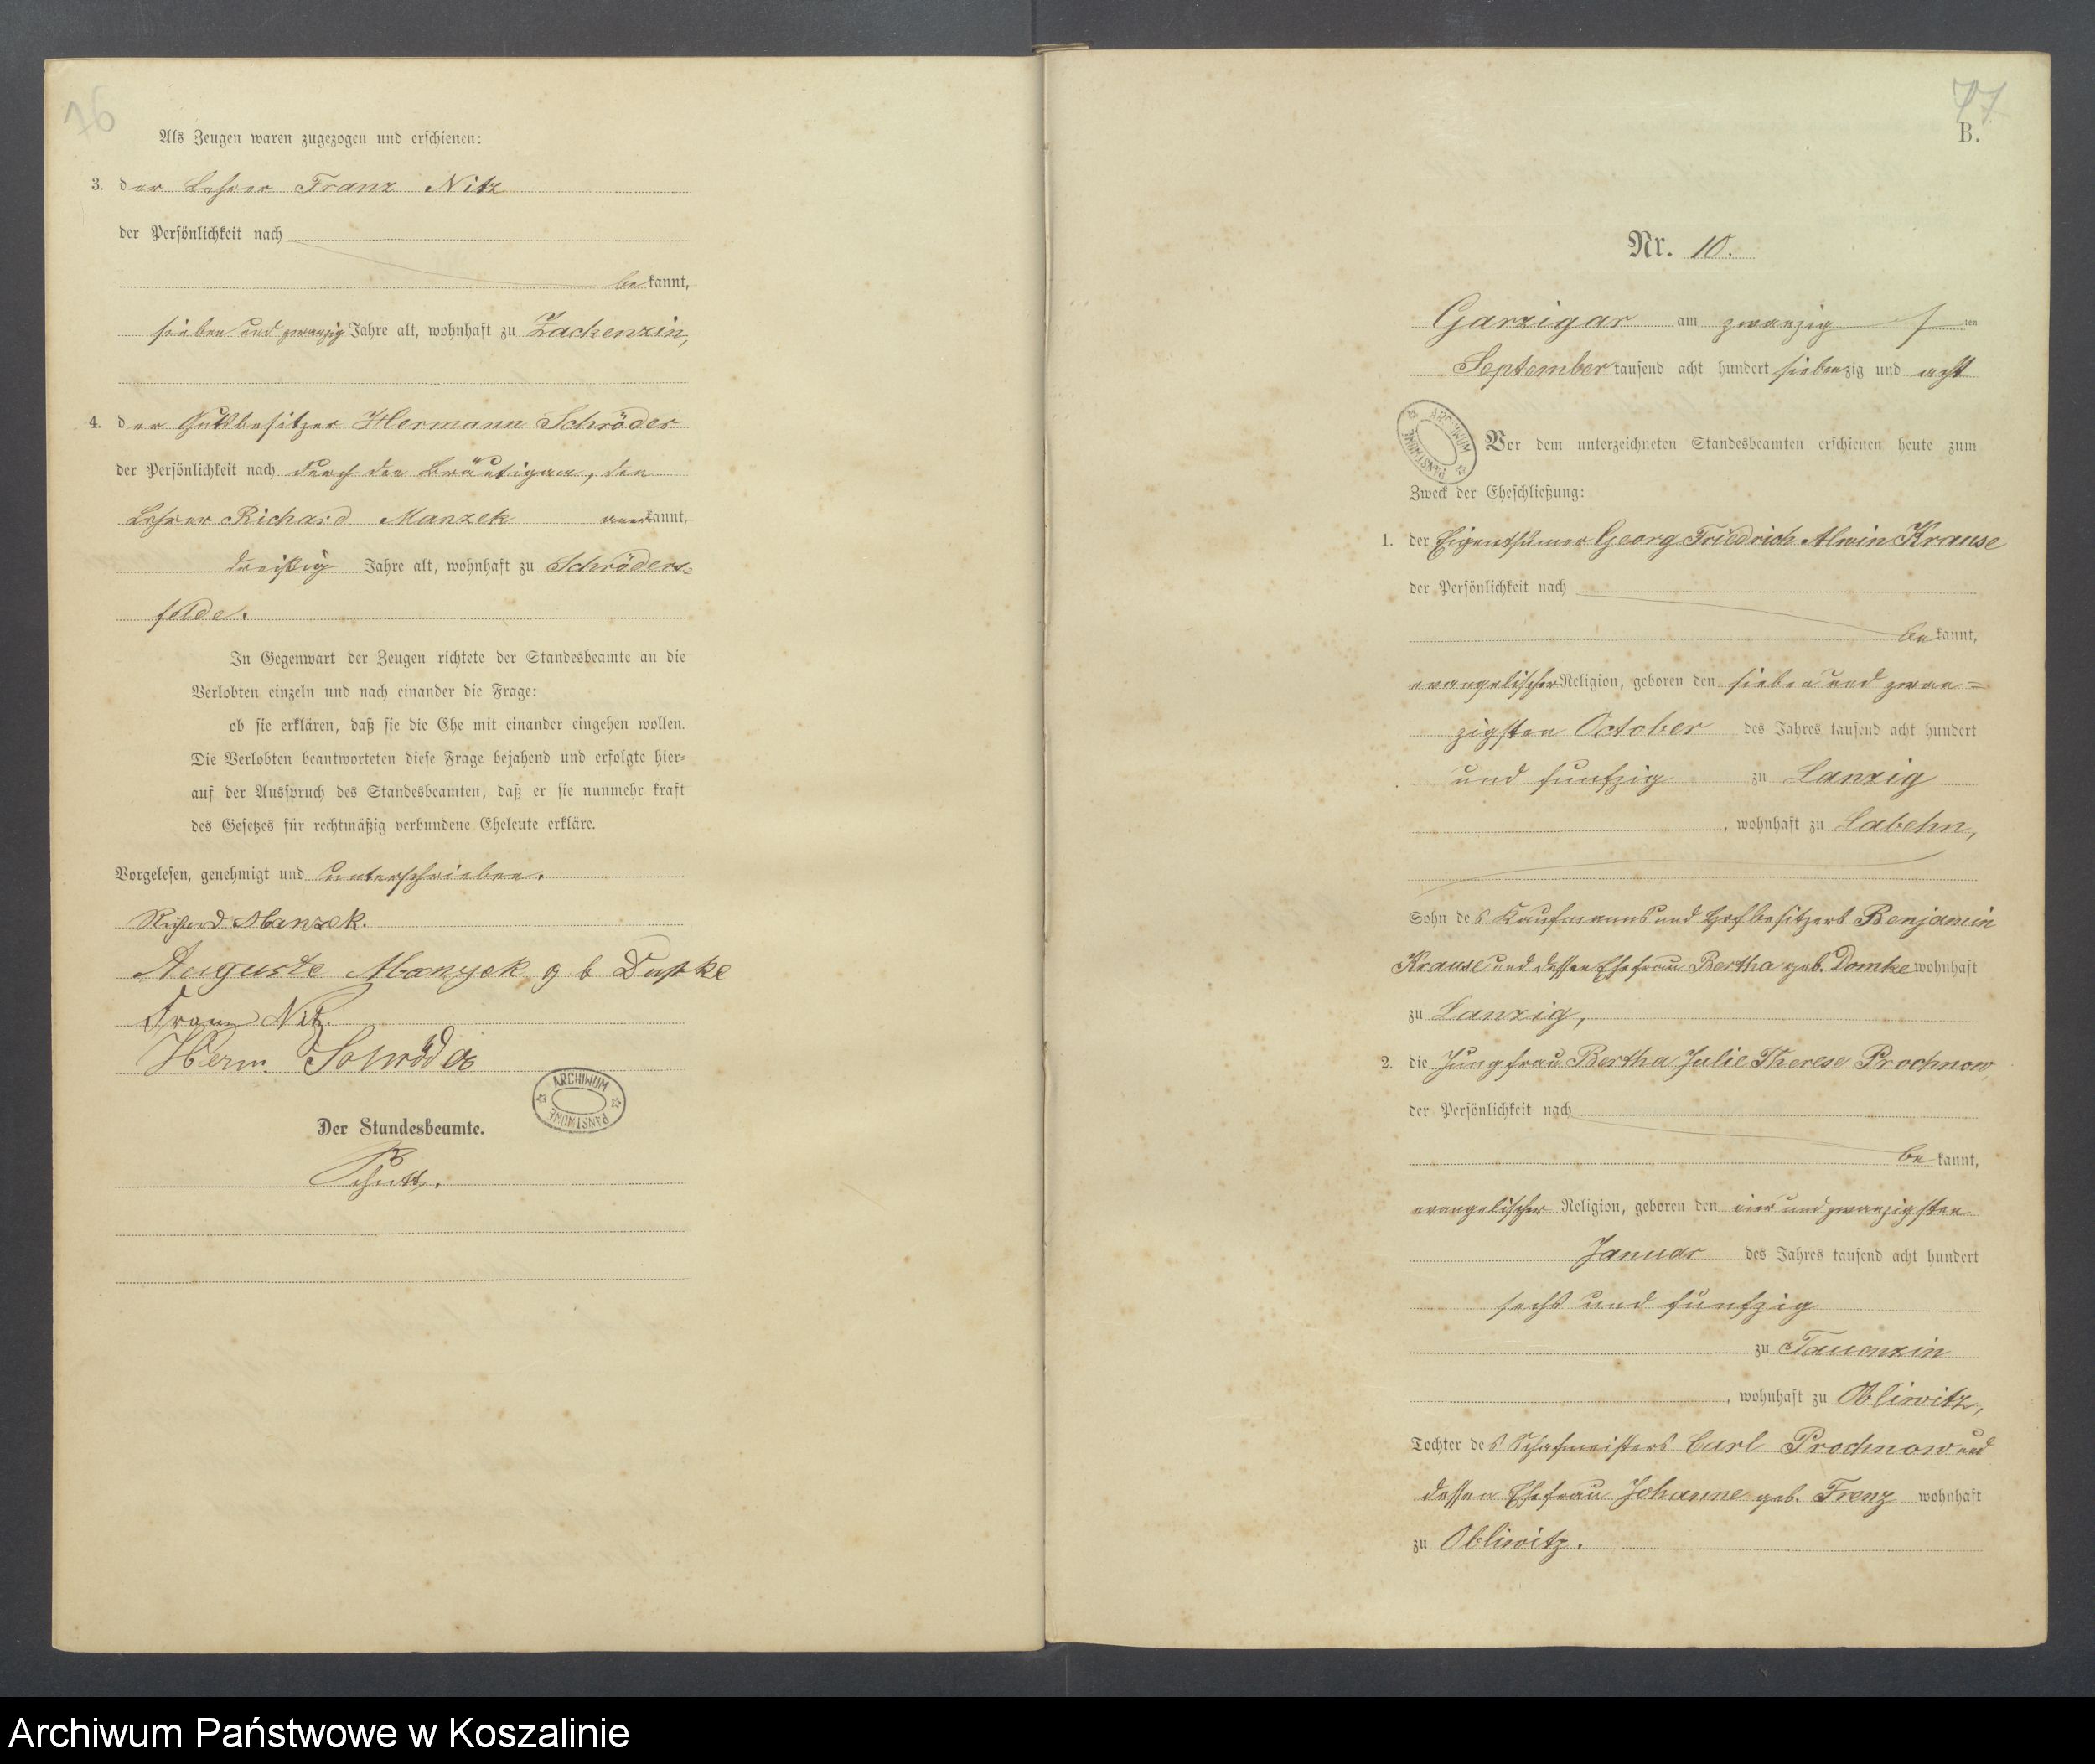 76
Als Zeugen waren zugezogen und erschienen:
3. der Lehrer Franz Nitz
der Persönlichkeit nach
bekannt,
sieben und zwanzig Jahre alt, wohnhaft zu Zackenzin,
4. der Gutsbesitzer Hermann Schröder
der Persönlichkeit nach durch den Bräutigam, den
Lehrer Richard Manzek anerkannt,
dreißig Jahre alt, wohnhaft zu Schröders-
felde.
In Gegenwart der Zeugen richtete der Standesbeamte an die
Verlobten einzeln und nach einander die Frage:
ob sie erklären, daß sie die Ehe mit einander eingehen wollen.
Die Verlobten beantworteten diese Frage bejahend und erfolgte hier-
auf der Ausspruch des Standesbeamten, daß er sie nunmehr kraft
des Gesetzes für rechtmäßig verbundene Eheleute erkläre.
Vorgelesen, genehmigt und unterschrieben.
Richard Manzek.
Auguste Manzek g b
Franz Nitz.
Herm. Schröder
ARCHIWUM PAŃSTWOWE
Der Standesbeamte.
77
B.
Nr. 10.
Garzigar am zwanzigsten
September tausend acht hundert siebenzig und acht
ARCHIWUM PAŃSTWOWE
Vor dem unterzeichneten Standesbeamten erschienen heute zum
Zweck der Eheschließung:
1. der Eigenthümer Georg Friedrich Alwin Krause
der Persönlichkeit nach
bekannt,
evangelischer Religion, geboren den sieben und zwan-
zigsten October des Jahres tausend acht hundert
und funfzig zu Lanzig
, wohnhaft zu Labehn,
Sohn des Kaufmanns und Hofbesitzers Benjamin
Krause und dessen Ehefrau Bertha geb. Domke wohnhaft
zu Lanzig,
2. die Jungfrau Bertha Julie Therese Prochnow
der Persönlichkeit nach
bekannt,
evangelischer Religion, geboren den vier und zwanzigsten
Januar des Jahres tausend acht hundert
sechs und funfzig
zu Tauenzin
, wohnhaft zu Obliwitz,
Tochter des Schafmeisters Carl Prochnow und
dessen Ehefrau Johanne geb. Frenz wohnhaft
zu Obliwitz.
Archiwum Państwowe w Koszalinie